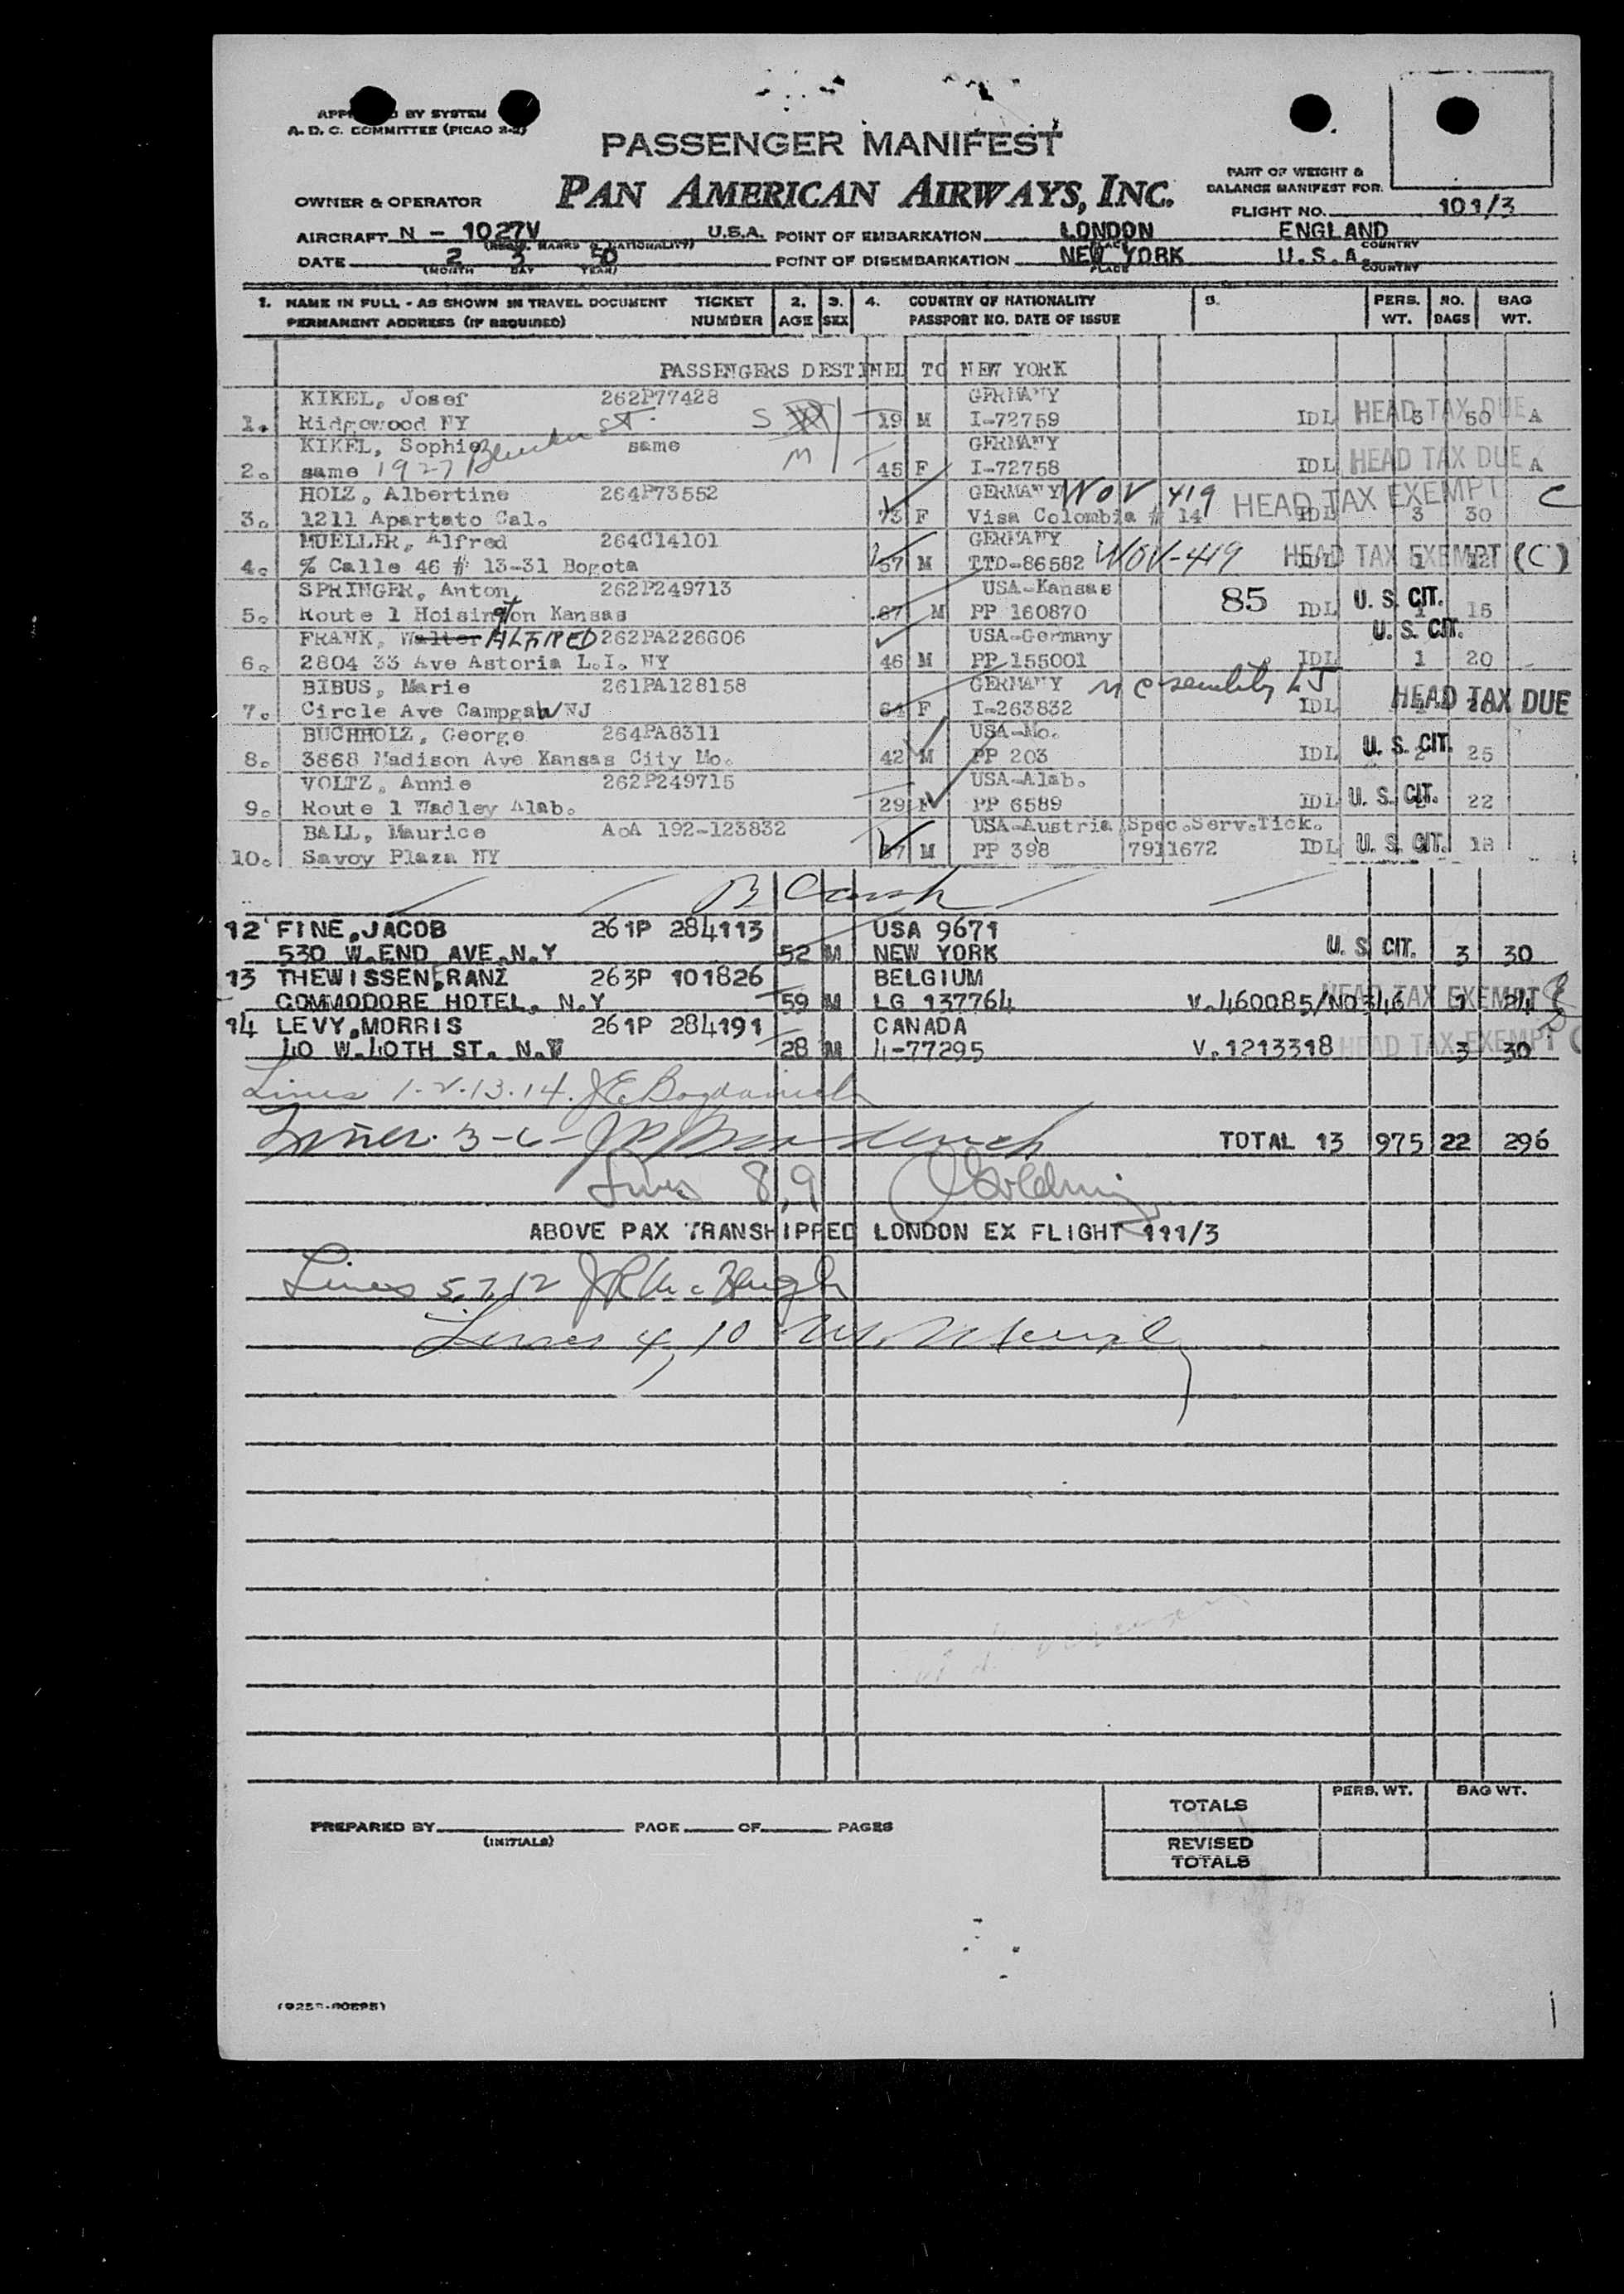 APP D BY SYSTEM
A. D. C. COMMITTEE (PICAO 2-2)
PASSENGER MANIFEST
PAN AMERICAN AIRWAYS, INC.
PART OF WEIGHT &
BALANCE MANIFEST FOR.
OWNER & OPERATOR
FLIGHT NO. 101/3
AIRCRAFT N - 1027V U.S.A. POINT OF EMBARKATION LONDON ENGLAND
DATE 2 3 50 POINT OF DISEMBARKATION NEW YORK U.S.A.
(MONTH DAY YEAR) PLACE COUNTRY
1. NAME IN FULL - AS SHOWN IN TRAVEL DOCUMENT TICKET 2. 3. 4. COUNTRY OF NATIONALITY 5. PERS. NO. BAG
PERMANENT ADDRESS (IF REQUIRED) NUMBER AGE SEX PASSPORT NO. DATE OF ISSUE WT. BAGS WT.
PASSENGERS DESTINED TO NEW YORK
KIKEL, Josef 262P77428 GERMANY
1. Ridgewood NY S 19 M I-72759 IDL HEAD TAX DUE 3 50 A
KIKEL, Sophie same GERMANY
2. same 1927 M 45 F I-72758 IDL HEAD TAX DUE A
HOLZ, Albertine 264P73552 GERMANY WOV 419 HEAD TAX EXEMPT C
3. 1211 Apartato Cal. 73 F Visa Colombia # 14 IDL 3 30
MUELLER, Alfred 264C14101 GERMANY
4. % Calle 46 # 13-31 Bogota 57 M TTD-86582 WOV-419 HEAD TAX EXEMPT 1 12 (C)
SPRINGER, Anton 262P249713 USA-Kansas
5. Route 1 Hoisington Kansas 67 M PP 160870 85 IDL U. S. CIT. 1 15
FRANK, Walter ALFRED 262PA226606 USA-Germany U. S. CIT.
6. 2804 33 Ave Astoria L.I. NY 46 M PP 155001 IDL 1 20
BIBUS, Marie 261PA128158 GERMANY
7. Circle Ave Campgaw NJ 64 F I-263832 IDL HEAD TAX DUE
BUCHHOLZ, George 264PA8311 USA-Mo.
8. 3668 Madison Ave Kansas City Mo. 42 M PP 203 IDL U. S. CIT. 2 25
VOLTZ, Annie 262P249715 USA-Alab.
9. Route 1 Wadley Alab. 29 F PP 6589 IDL U. S. CIT. 22
BALL, Maurice AoA 192-123832 USA-Austria Spec.Serv.Tick.
10. Savoy Plaza NY 37 M PP 398 7911672 IDL U. S. CIT. 18
12 FINE, JACOB 261P 284113 USA 9671
530 W.END AVE.N.Y 52 M NEW YORK U. S. CIT. 3 30
13 THEWISSEN,FRANZ 263P 101826 BELGIUM
COMMODORE HOTEL, N.Y 59 M LG 137764 V.460085/NO346 HEAD TAX EXEMPT 1 24
14 LEVY,MORRIS 261P 284191 CANADA
40 W.40TH ST. N.Y 28 M 4-77295 V.1213318 HEAD TAX EXEMPT 3 30
Lines 1-2-13-14.
Lines 3-6- TOTAL 13 975 22 296
Lines 8,9
ABOVE PAX TRANSHIPPED LONDON EX FLIGHT 111/3
Lines 5,7,12 J R McHugh
Lines 4, 10
PREPARED BY PAGE OF PAGES
(INITIALS)
PERS. WT. BAG WT.
TOTALS
REVISED
TOTALS